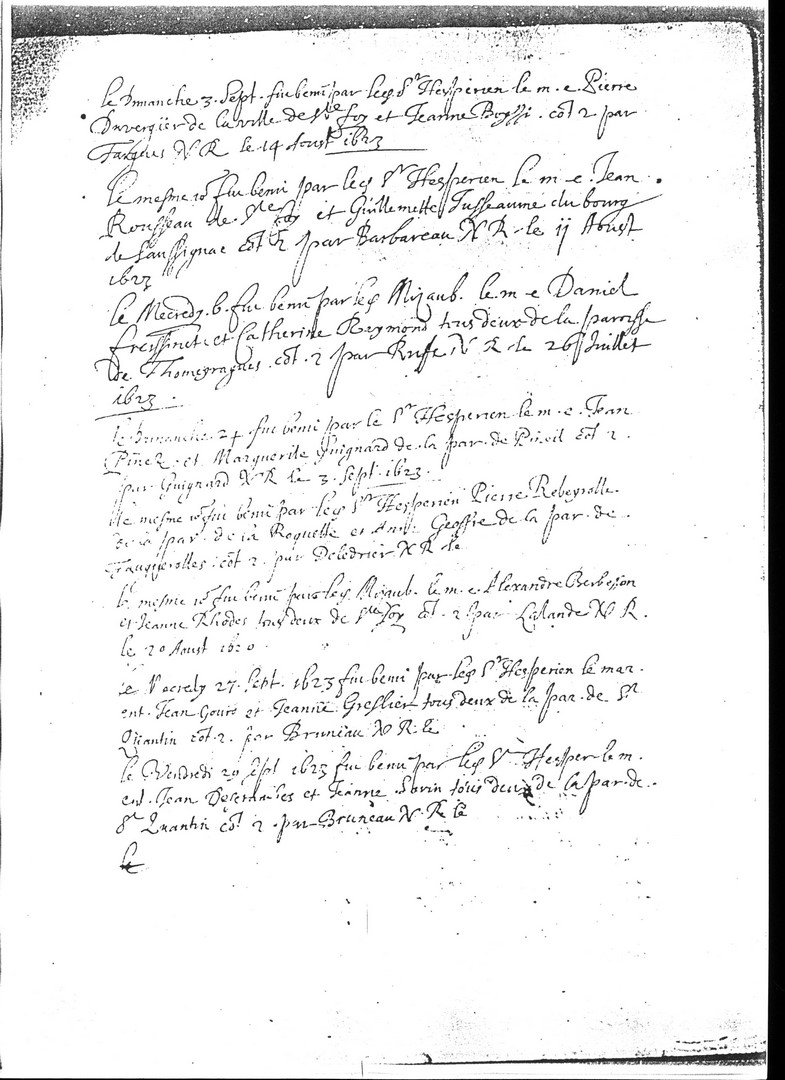 le Dimanche 3. Sept. fut beni par led Sr Hesperien le m. e. Pierre
Duvergier de la ville de Ste Foy et Jeanne Boyssi. cõt 2 par
Fargues N R le 14 Aoust 1623
le mesme io fut beni par led Sr Hesperien le m. e. Jean
Rousseau de Ste Foy et Guillemette Jusseaume du bourg
de Saussignac cõt 2 par Barbareau N R. le 11 Aoust
1623
le Mecredy 6. fut beni par led Mizaub. le m e Daniel
Freissinet et Catherine Raymond tous deux de la paroisse
de Thomeragues. cõt. 2 par Ruse N R le 26 Juillet
1623.
le Dimanche 24 fut beni par le Sr Hesperien le m. e. Jean
Pinet et Marguerite Guignard de la par. de Pineil cõt 2.
par Guignard N R le 3. Sept. 1623.
le mesme io fut beni par led Sr Hesperien Pierre Rebeyrolle
de la par. de la Roquette et Anne Geoffre de la par. de
Fauguerolles. cõt 2. par Deledrier N R. le
le mesme io fut beni par led Mizaub. le m. e. Alexandre Berbeson
et Jeanne Rhodes tous deux de Ste Foy cõt. 2 par Lalande N R.
le 20 Aoust 1620.
le Mecredy 27. Sept. 1623 fut beni par led Sr Hesperien le mar.
ent. Jean Gouro et Jeanne Greslier tous deux de la par. de St
Quantin cõt. 2. par Bruneau N R. le
le Vendredi 29 Sept 1623 fut beni par led Sr Hesper. le m.
ent. Jean et Jeanne Savin tous deux de la par. de
St Quantin cõt. 2. par Bruneau N. R. le
le